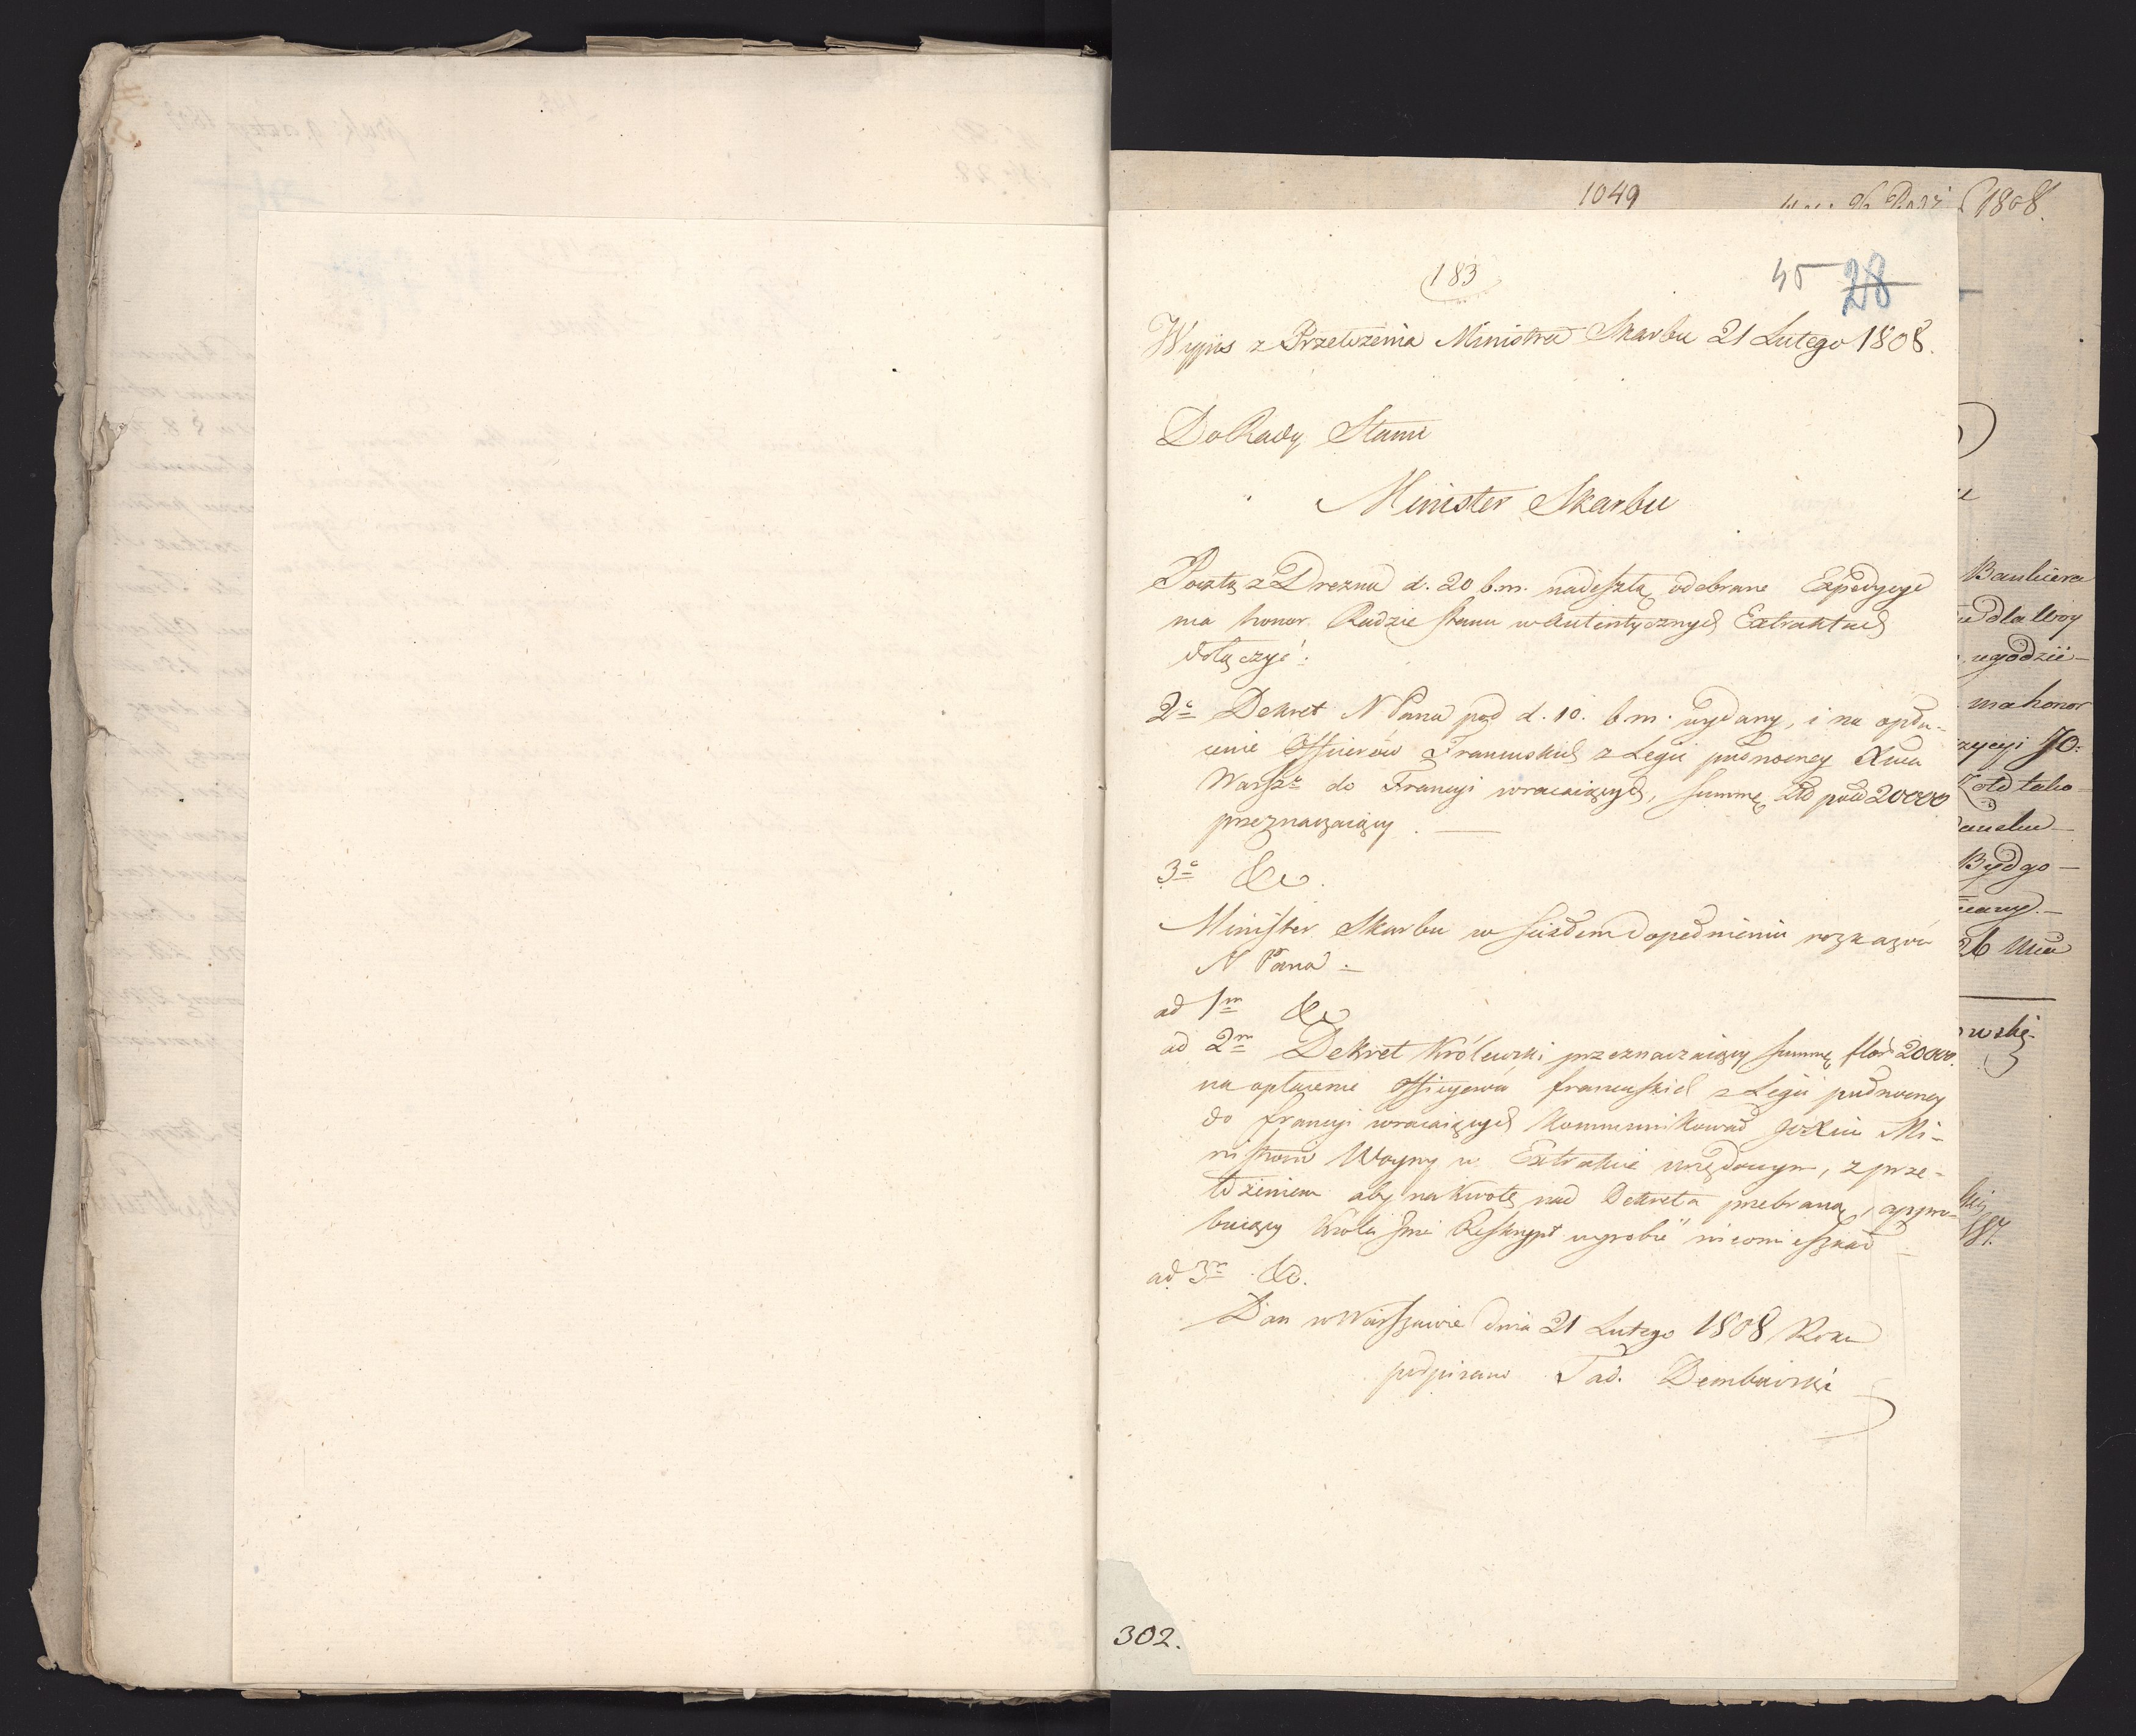 1049
1808.
183
45 28
Wypis z Przełożenia Ministra Skarbu 21 Lutego 1808.
Do Rady Stanu
Minister Skarbu
Pocztą z Drezna d. 20 b.m. nadeszłą odebrane Expedycye
ma honor Radzie Stanu w Autentycznych Extraktach
dołączyć:
2e Dekret N Pana pod d. 10. b m. wydany, i na opła-
cenie Officierów Francuskich z Legii pułnocney Xtwa
Warsz: do Francyi wracaiących, summę Złł pols 20000
przeznaczaiący. —
3e &c.
Minister Skarbu w ścisłem dopełnieniu rozkazów
N Pana —
ad 1m &c
ad 2m Dekret Królewski przeznaczaiący summę flor 20000.
na opłacenie Officyerów francuskich z Legii pułnocney
do francyi wracaiących kommunikował JO Xciu Mi-
nistrowi Woyny w Extrakcie urzędowym, z prze-
łożeniem aby na kwotę nad Dekreta przebraną, appro-
buiący Króla Jmci Reskrypt wyrobić nieomieszkał —
ad 3m &c.
Dan w Warszawie dnia 21 Lutego 1808 Roku
podpisano Tad. Dembowski
302.
Bankiera
dla Woy
ugodzie-
ma honor
JO:
Bydgo-